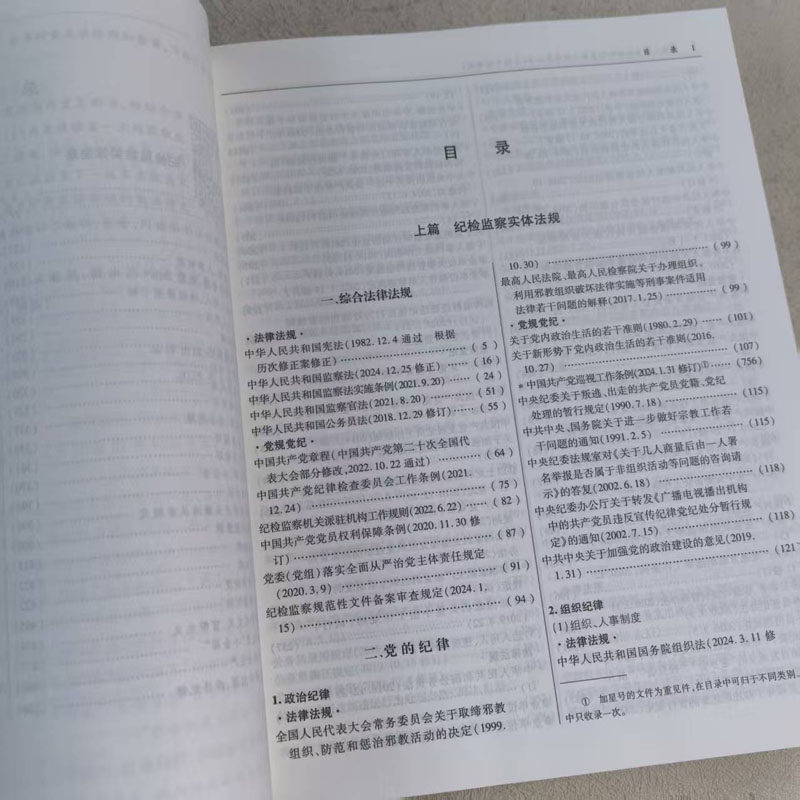 目 录 1
目 录
上篇 纪检监察实体法规
一、综合法律法规
·法律法规·
中华人民共和国宪法(1982.12.4通过 根据
历次修正案修正)………………( 5 )
中华人民共和国监察法(2024.12.25修正)……( 16 )
中华人民共和国监察法实施条例(2021.9.20)……( 24 )
中华人民共和国监察官法(2021.8.20)………( 51 )
中华人民共和国公务员法(2018.12.29修订)……( 55 )
·党规党纪·
中国共产党章程(中国共产党第二十次全国代
表大会部分修改,2022.10.22通过)………( 64 )
中国共产党纪律检查委员会工作条例(2021.
12.24)………………( 75 )
纪检监察机关派驻机构工作规则(2022.6.22)……( 82 )
中国共产党党员权利保障条例(2020.11.30修
订)………………( 87 )
党委(党组)落实全面从严治党主体责任规定
(2020.3.9)………………( 91 )
纪检监察规范性文件备案审查规定(2024.1.
15)………………( 94 )
二、党的纪律
1.政治纪律
·法律法规·
全国人民代表大会常务委员会关于取缔邪教
组织、防范和惩治邪教活动的决定(1999.
10.30)………………( 99 )
最高人民法院、最高人民检察院关于办理组织、
利用邪教组织破坏法律实施等刑事案件适用
法律若干问题的解释(2017.1.25)………( 99 )
·党规党纪·
关于党内政治生活的若干准则(1980.2.29)……(101)
关于新形势下党内政治生活的若干准则(2016.
10.27)………………(107)
*中国共产党巡视工作条例(2024.1.31修订)①……(756)
中央纪委关于叛逃、出走的共产党员党籍、党纪
处理的暂行规定(1990.7.18)………(115)
中共中央、国务院关于进一步做好宗教工作若
干问题的通知(1991.2.5)………(115)
中央纪委法规室对《关于几人商量后由一人署
名举报是否属于非组织活动等问题的咨询请
示》的答复(2002.6.18)………(118)
中央纪委办公厅关于转发《广播电视播出机构
中的共产党员违反宣传纪律党纪处分暂行规
定》的通知(2002.7.15)………(118)
中共中央关于加强党的政治建设的意见(2019.
1.31)………………(121
2.组织纪律
(1)组织、人事制度
·法律法规·
中华人民共和国国务院组织法(2024.3.11修
① 加星号的文件为重见件,在目录中可归于不同类别,
中只收录一次。